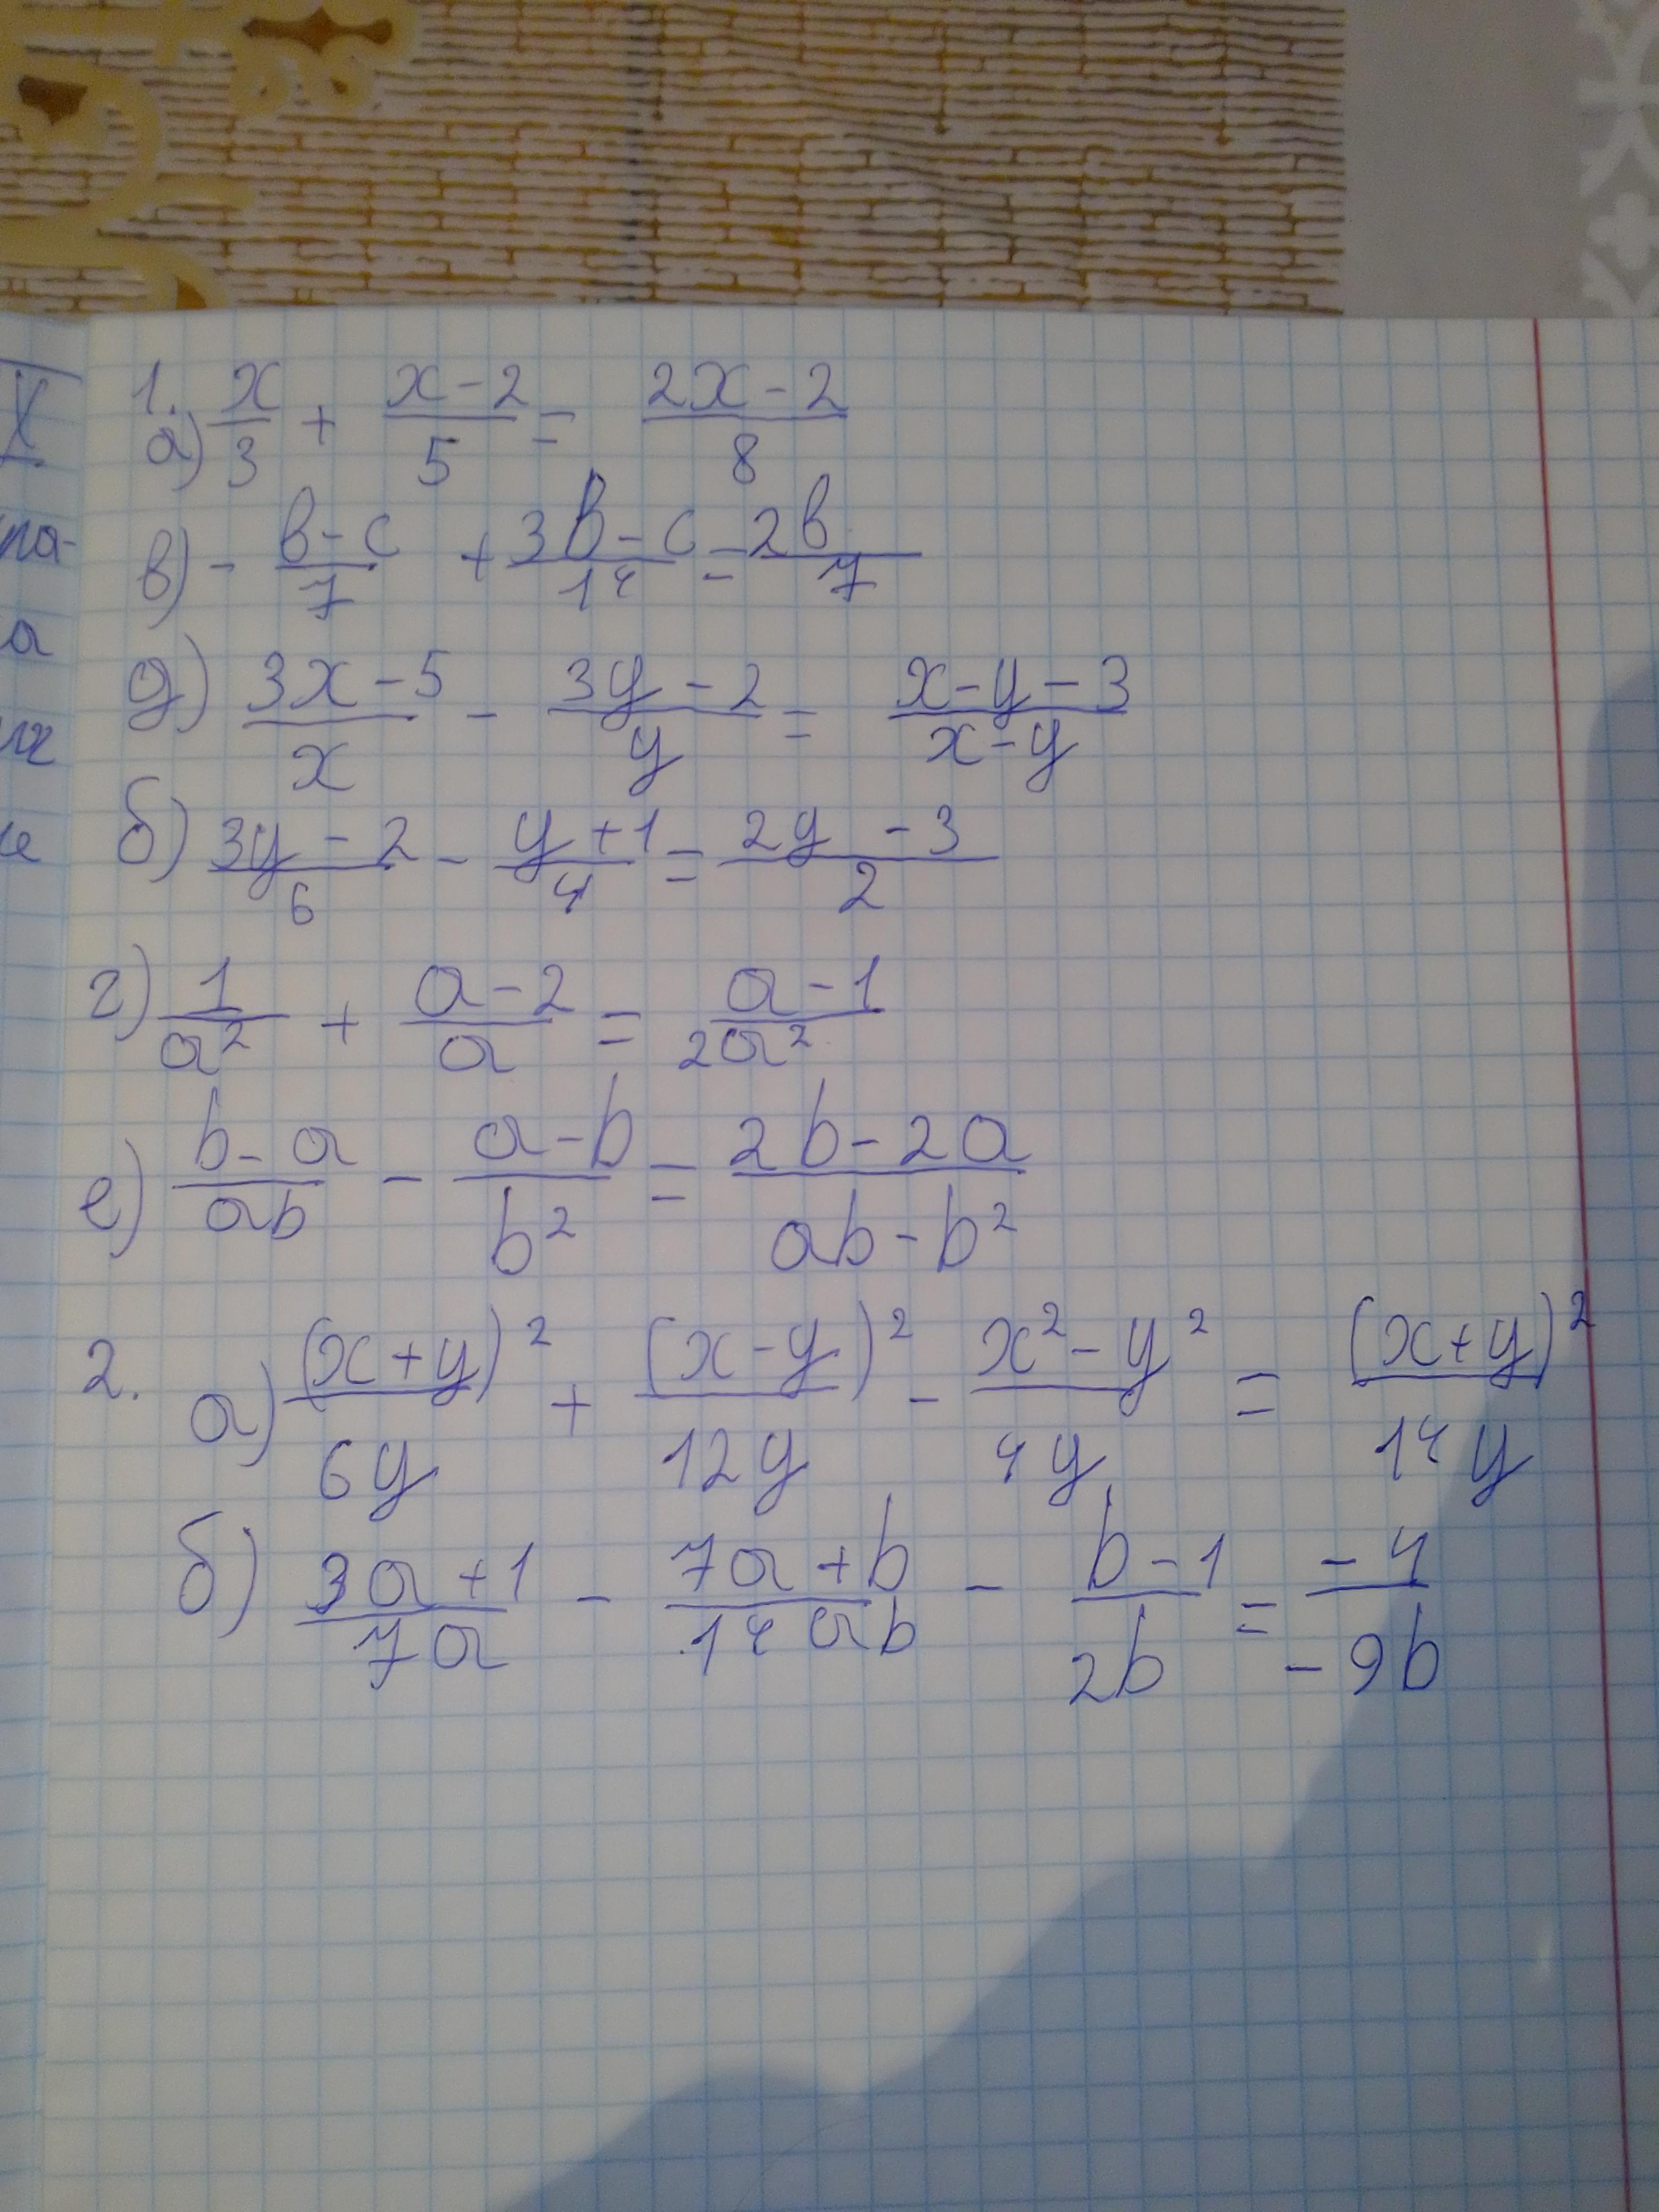 1. а) x/3 + (x-2)/5 = (2x-2)/8
в) - (b-c)/7 + (3b-c)/14 = 2b/7
д) (3x-5)/x - (3y-2)/y = (x-y-3)/(x-y)
б) (3y-2)/6 - (y+1)/4 = (2y-3)/2
г) 1/a² + (a-2)/a = (a-1)/2a²
е) (b-a)/ab - (a-b)/b² = (2b-2a)/(ab-b²)
2. а) (x+y)²/6y + (x-y)²/12y - (x²-y²)/4y = (x+y)²/14y
б) (3a+1)/7a - (7a+b)/14ab - (b-1)/2b = -4/-9b